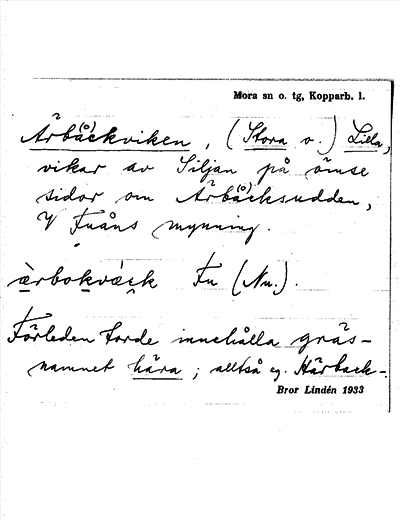 Mora sn o. tg, Kopparb. l.
Ärbäckviken, (Stora o.) Lilla,
(o)
vikar av Siljan på ömse
sidor om Ärbäcksudden,
(o)
V Fuåns mynning.
ärbokväck Fu (Nu.).
Förleden torde innehålla gräs-
namnet hära; alltså eg. Härback-.
Bror Lindén 1933